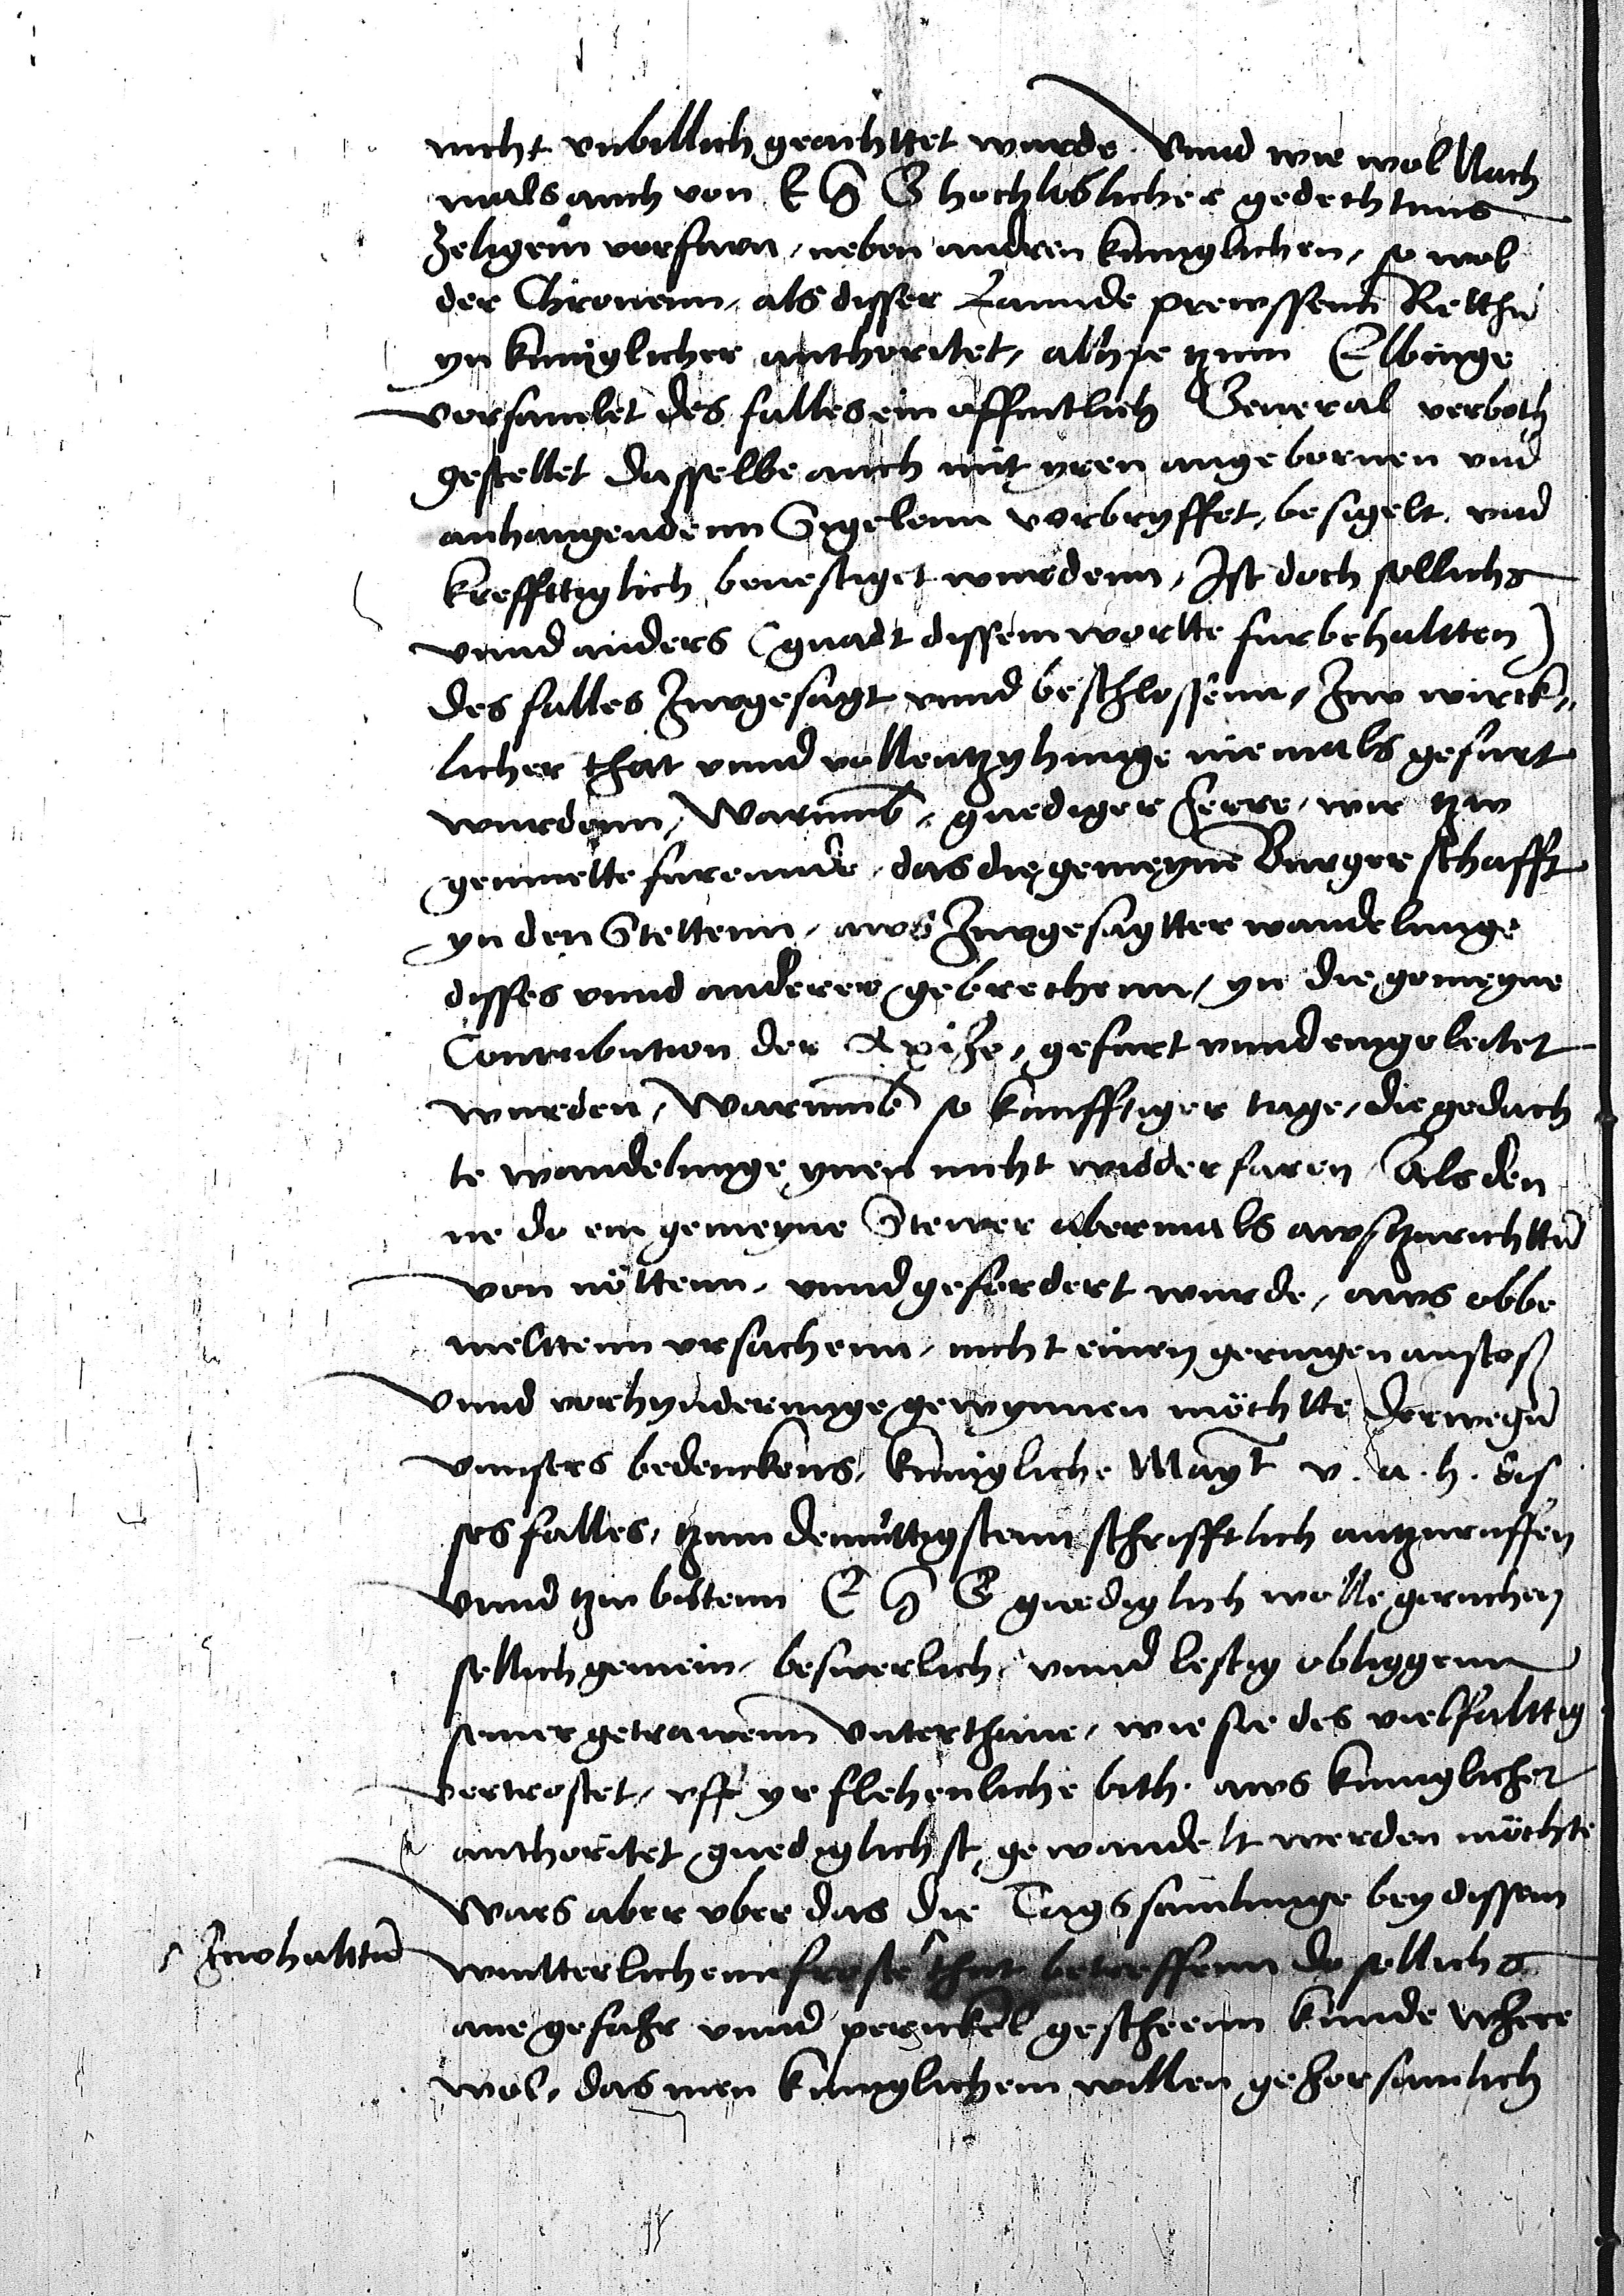 nicht vnbillich geachttet wurde. Vnnd wie wol Nach
mals auch von E G G hochloblicher gedechtnus
Zeligem vorfarn, neben andren kuniglichen, so wol
der Chronenn, als disser Lannde prewssenn Retthn
yn kuniglicher authoritet, alhye tzum Elbinge
vorsamlet des falles ein offentlich General verboth
gestellet dasselbe auch mit yren angebornen vnd
anhangendenn Sigelenn vorbryffet, besigelt. vnd
kreffttiglich beuestiget wurdenn, Ist doch sollichs
vnnd anders (gnadt dissem wortte furbehaltten)
des falles Zwgesagt vnnd beschlossenn, Zw wirck,,
licher that vnnd vollentzyhunge niemals gefurt
wurdenn, Warumb, gnediger Herre, wir tzw
gemuette furennde, das die gemeyne Burgerschafft
yn den Stettenn, aws Zwgesagtter wandelunge
disses vnnd anderer gebrechenn, yn die gemeyne
Contribution der Axize, gefurt vnnd eingeleitet
wurden, Warumb so kunfftiger tage, die gedach
te wandelunge ynen nicht widderfaren, Als den
ne do ein gemeyne Stewer abermals awsszurichttn
von nöttenn, vnnd gefordert wurde, aws obbe
melttenn vrsachenn, nicht einen geringen anstoß
vnnd vorhynderunge gewynnen möchtte Derwegn
vnnsers bedenckens, kunigliche Mayt v. a. h. dis
ses falles, tzum demuttigstenn schrifftlich antzuruffen
vnnd tzw bittenn E G G gnediglich wolle geruchen
sollich gemein, beswerlich, vnnd lestig obliggenn
seiner getrawenn Vnterthane, wie sie des vielfalttig
vertrostet, vff yr flehenliche bith. aws kuniglicher
authoritet, gnediglichst, gewandelt werden möchte
Wars aber vber das die Tagssamlunge bey dissem
wintterlichenn froste that betreffenn do sollichs
Zwhalttn
ane gefahr vnnd perickel gescheenn kunde Where
wol, das men kuniglichem willen gehorsamlich